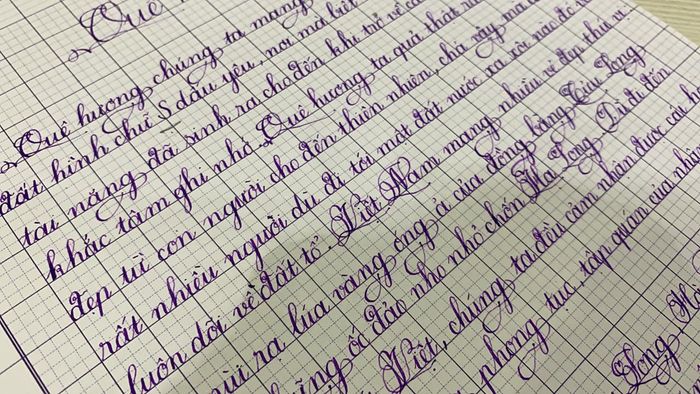 Quê
Quê hương chúng ta mang
đất hình chữ S dấu yêu, nơi mỗi
tài năng đã sinh ra cho đến khi trở về
khắc tâm ghi nhớ. Quê hương ta quả thật
đẹp từ con người cho đến thiên nhiên, chả vậy mà
rất nhiều người dù đi tới một đất nước xa xôi nào đó
luôn dõi về đất tổ. Việt Nam mang nhiều vẻ đẹp thú vị.
rạ lúa vàng óng ả của đồng bằng Cửu Long
ốc đảo nho nhỏ chốn Hạ Long. Dù đi đến
Việt, chúng ta đều cảm nhận được cái
phong tục, tập quán của
Long,